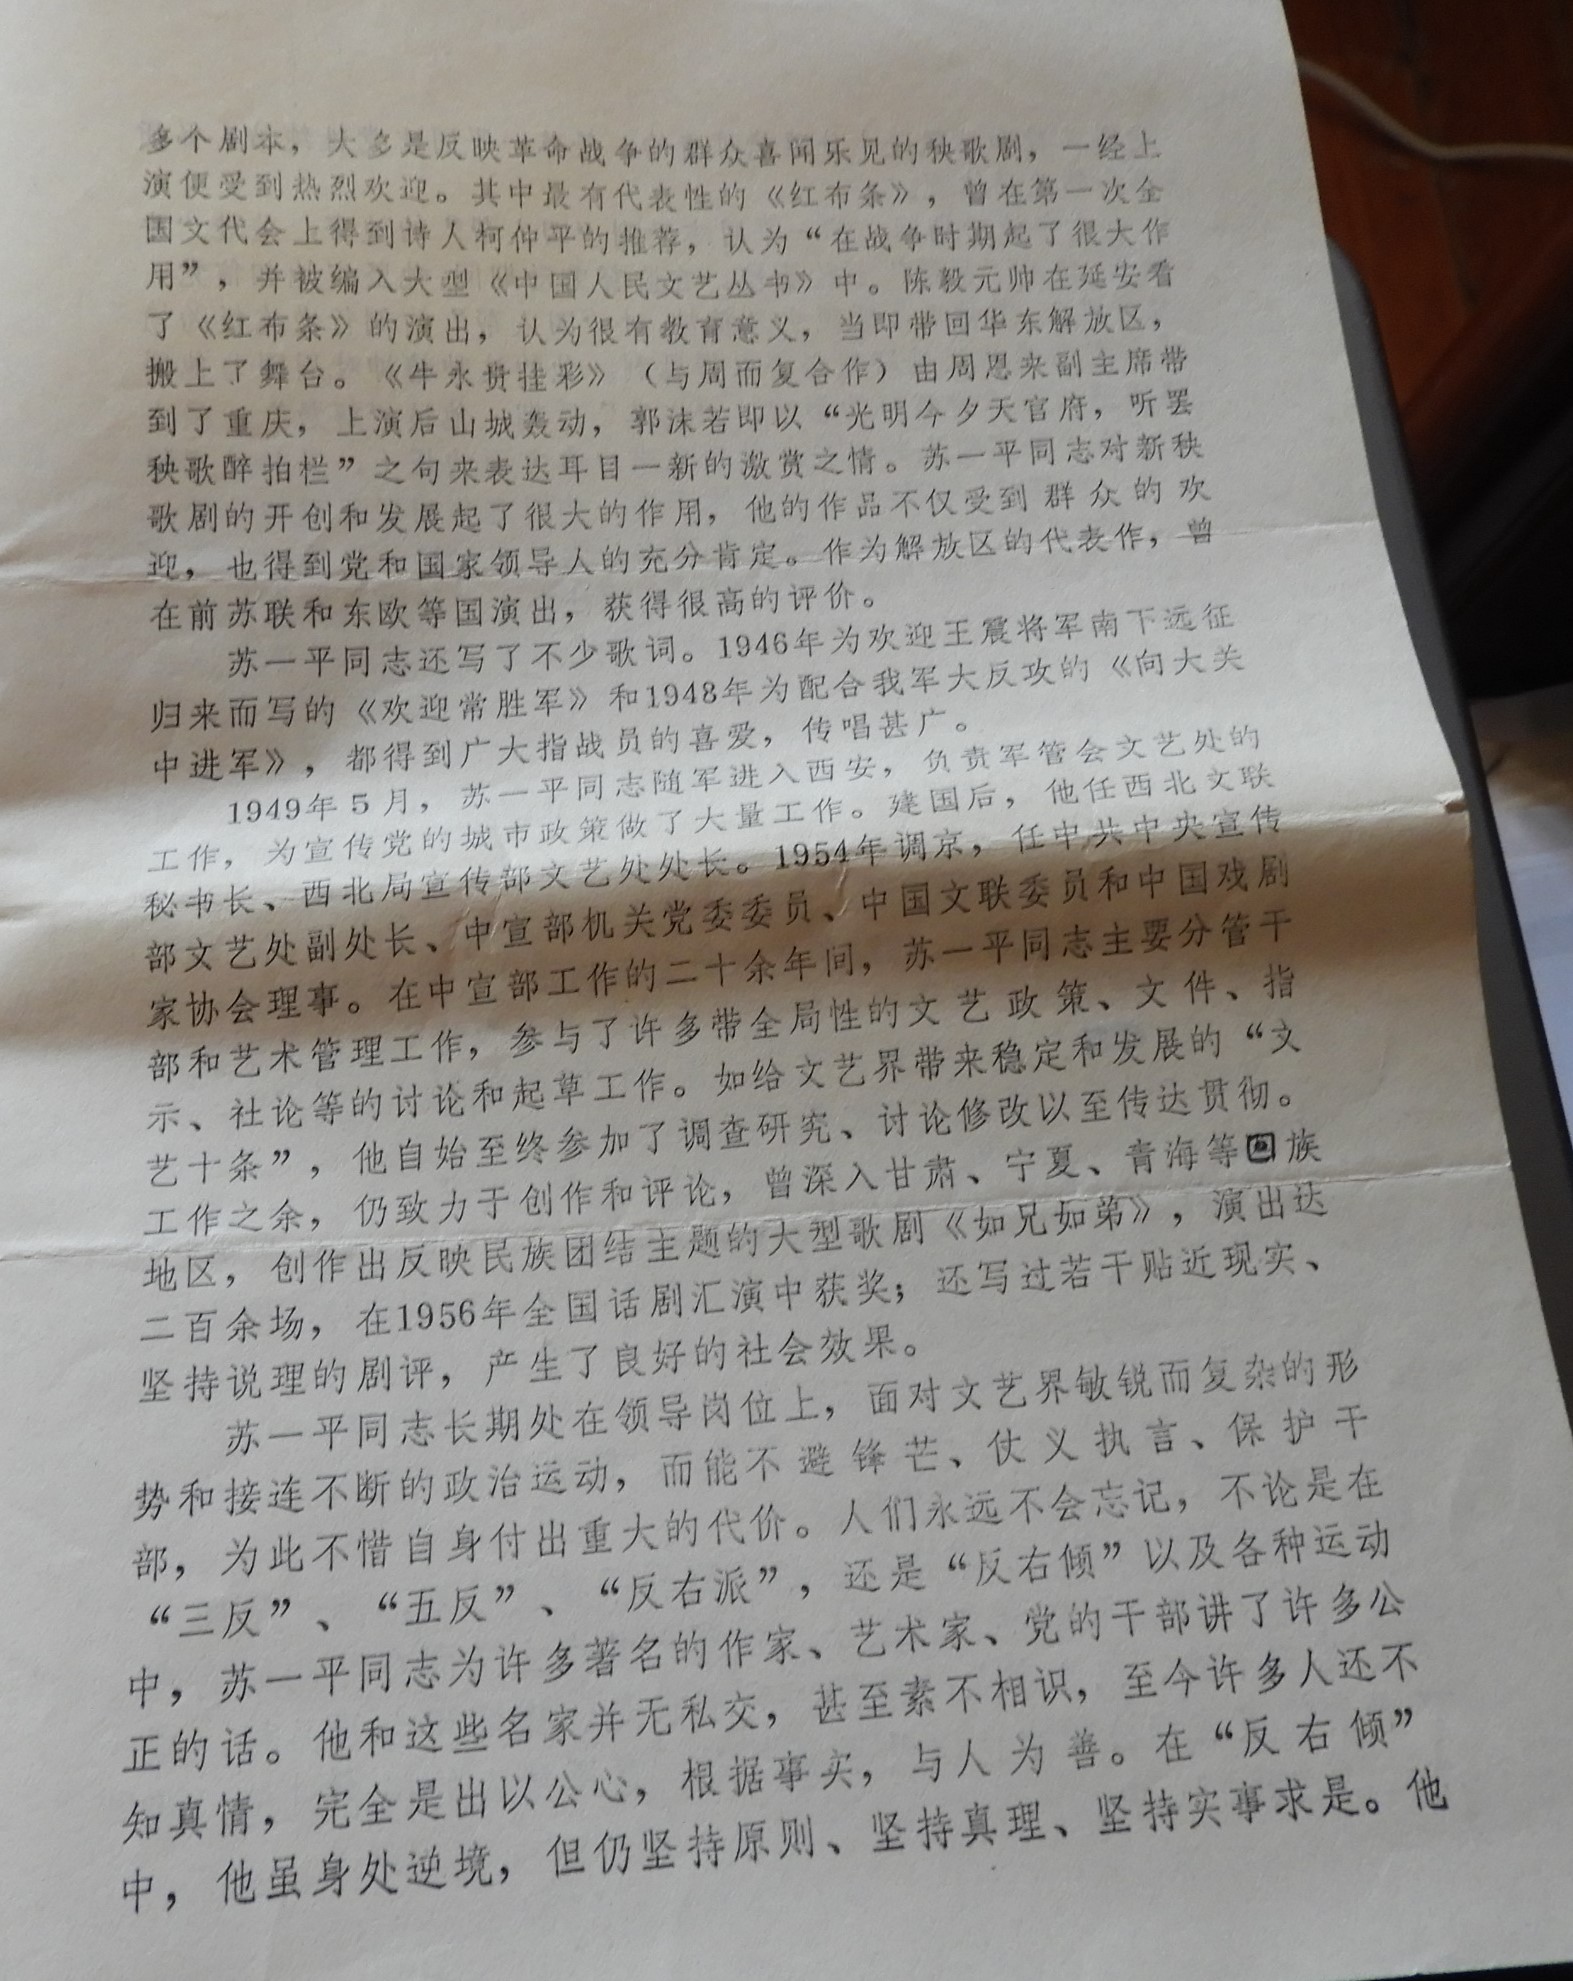 多个剧本，大多是反映革命战争的群众喜闻乐见的秧歌剧，一经上
演便受到热烈欢迎。其中最有代表性的《红布条》，曾在第一次全
国文代会上得到诗人柯仲平的推荐，认为“在战争时期起了很大作
用”，并被编入大型《中国人民文艺丛书》中。陈毅元帅在延安看
了《红布条》的演出，认为很有教育意义，当即带回华东解放区，
搬上了舞台。《牛永贵挂彩》（与周而复合作）由周恩来副主席带
到了重庆，上演后山城轰动，郭沫若即以“光明今夕天官府，听罢
秧歌醉拍栏”之句来表达耳目一新的激赏之情。苏一平同志对新秧
歌剧的开创和发展起了很大的作用，他的作品不仅受到群众的欢
迎，也得到党和国家领导人的充分肯定。作为解放区的代表作，曾
在前苏联和东欧等国演出，获得很高的评价。
苏一平同志还写了不少歌词。1946年为欢迎王震将军南下远征
归来而写的《欢迎常胜军》和1948年为配合我军大反攻的《向大关
中进军》，都得到广大指战员的喜爱，传唱甚广。
1949年5月，苏一平同志随军进入西安，负责军管会文艺处的
工作，为宣传党的城市政策做了大量工作。建国后，他任西北文联
秘书长、西北局宣传部文艺处处长。1954年调京，任中共中央宣传
部文艺处副处长、中宣部机关党委委员、中国文联委员和中国戏剧
家协会理事。在中宣部工作的二十余年间，苏一平同志主要分管干
部和艺术管理工作，参与了许多带全局性的文艺政策、文件、指
示、社论等的讨论和起草工作。如给文艺界带来稳定和发展的“文
艺十条”，他自始至终参加了调查研究、讨论修改以至传达贯彻。
工作之余，仍致力于创作和评论，曾深入甘肃、宁夏、青海等回族
地区，创作出反映民族团结主题的大型歌剧《如兄如弟》，演出达
二百余场，在1956年全国话剧汇演中获奖；还写过若干贴近现实、
坚持说理的剧评，产生了良好的社会效果。
苏一平同志长期处在领导岗位上，面对文艺界敏锐而复杂的形
势和接连不断的政治运动，而能不避锋芒、仗义执言、保护干
部，为此不惜自身付出重大的代价。人们永远不会忘记，不论是在
“三反”、“五反”、“反右派”，还是“反右倾”以及各种运动
中，苏一平同志为许多著名的作家、艺术家、党的干部讲了许多公
正的话。他和这些名家并无私交，甚至素不相识，至今许多人还不
知真情，完全是出以公心，根据事实，与人为善。在“反右倾”
中，他虽身处逆境，但仍坚持原则、坚持真理、坚持实事求是。他